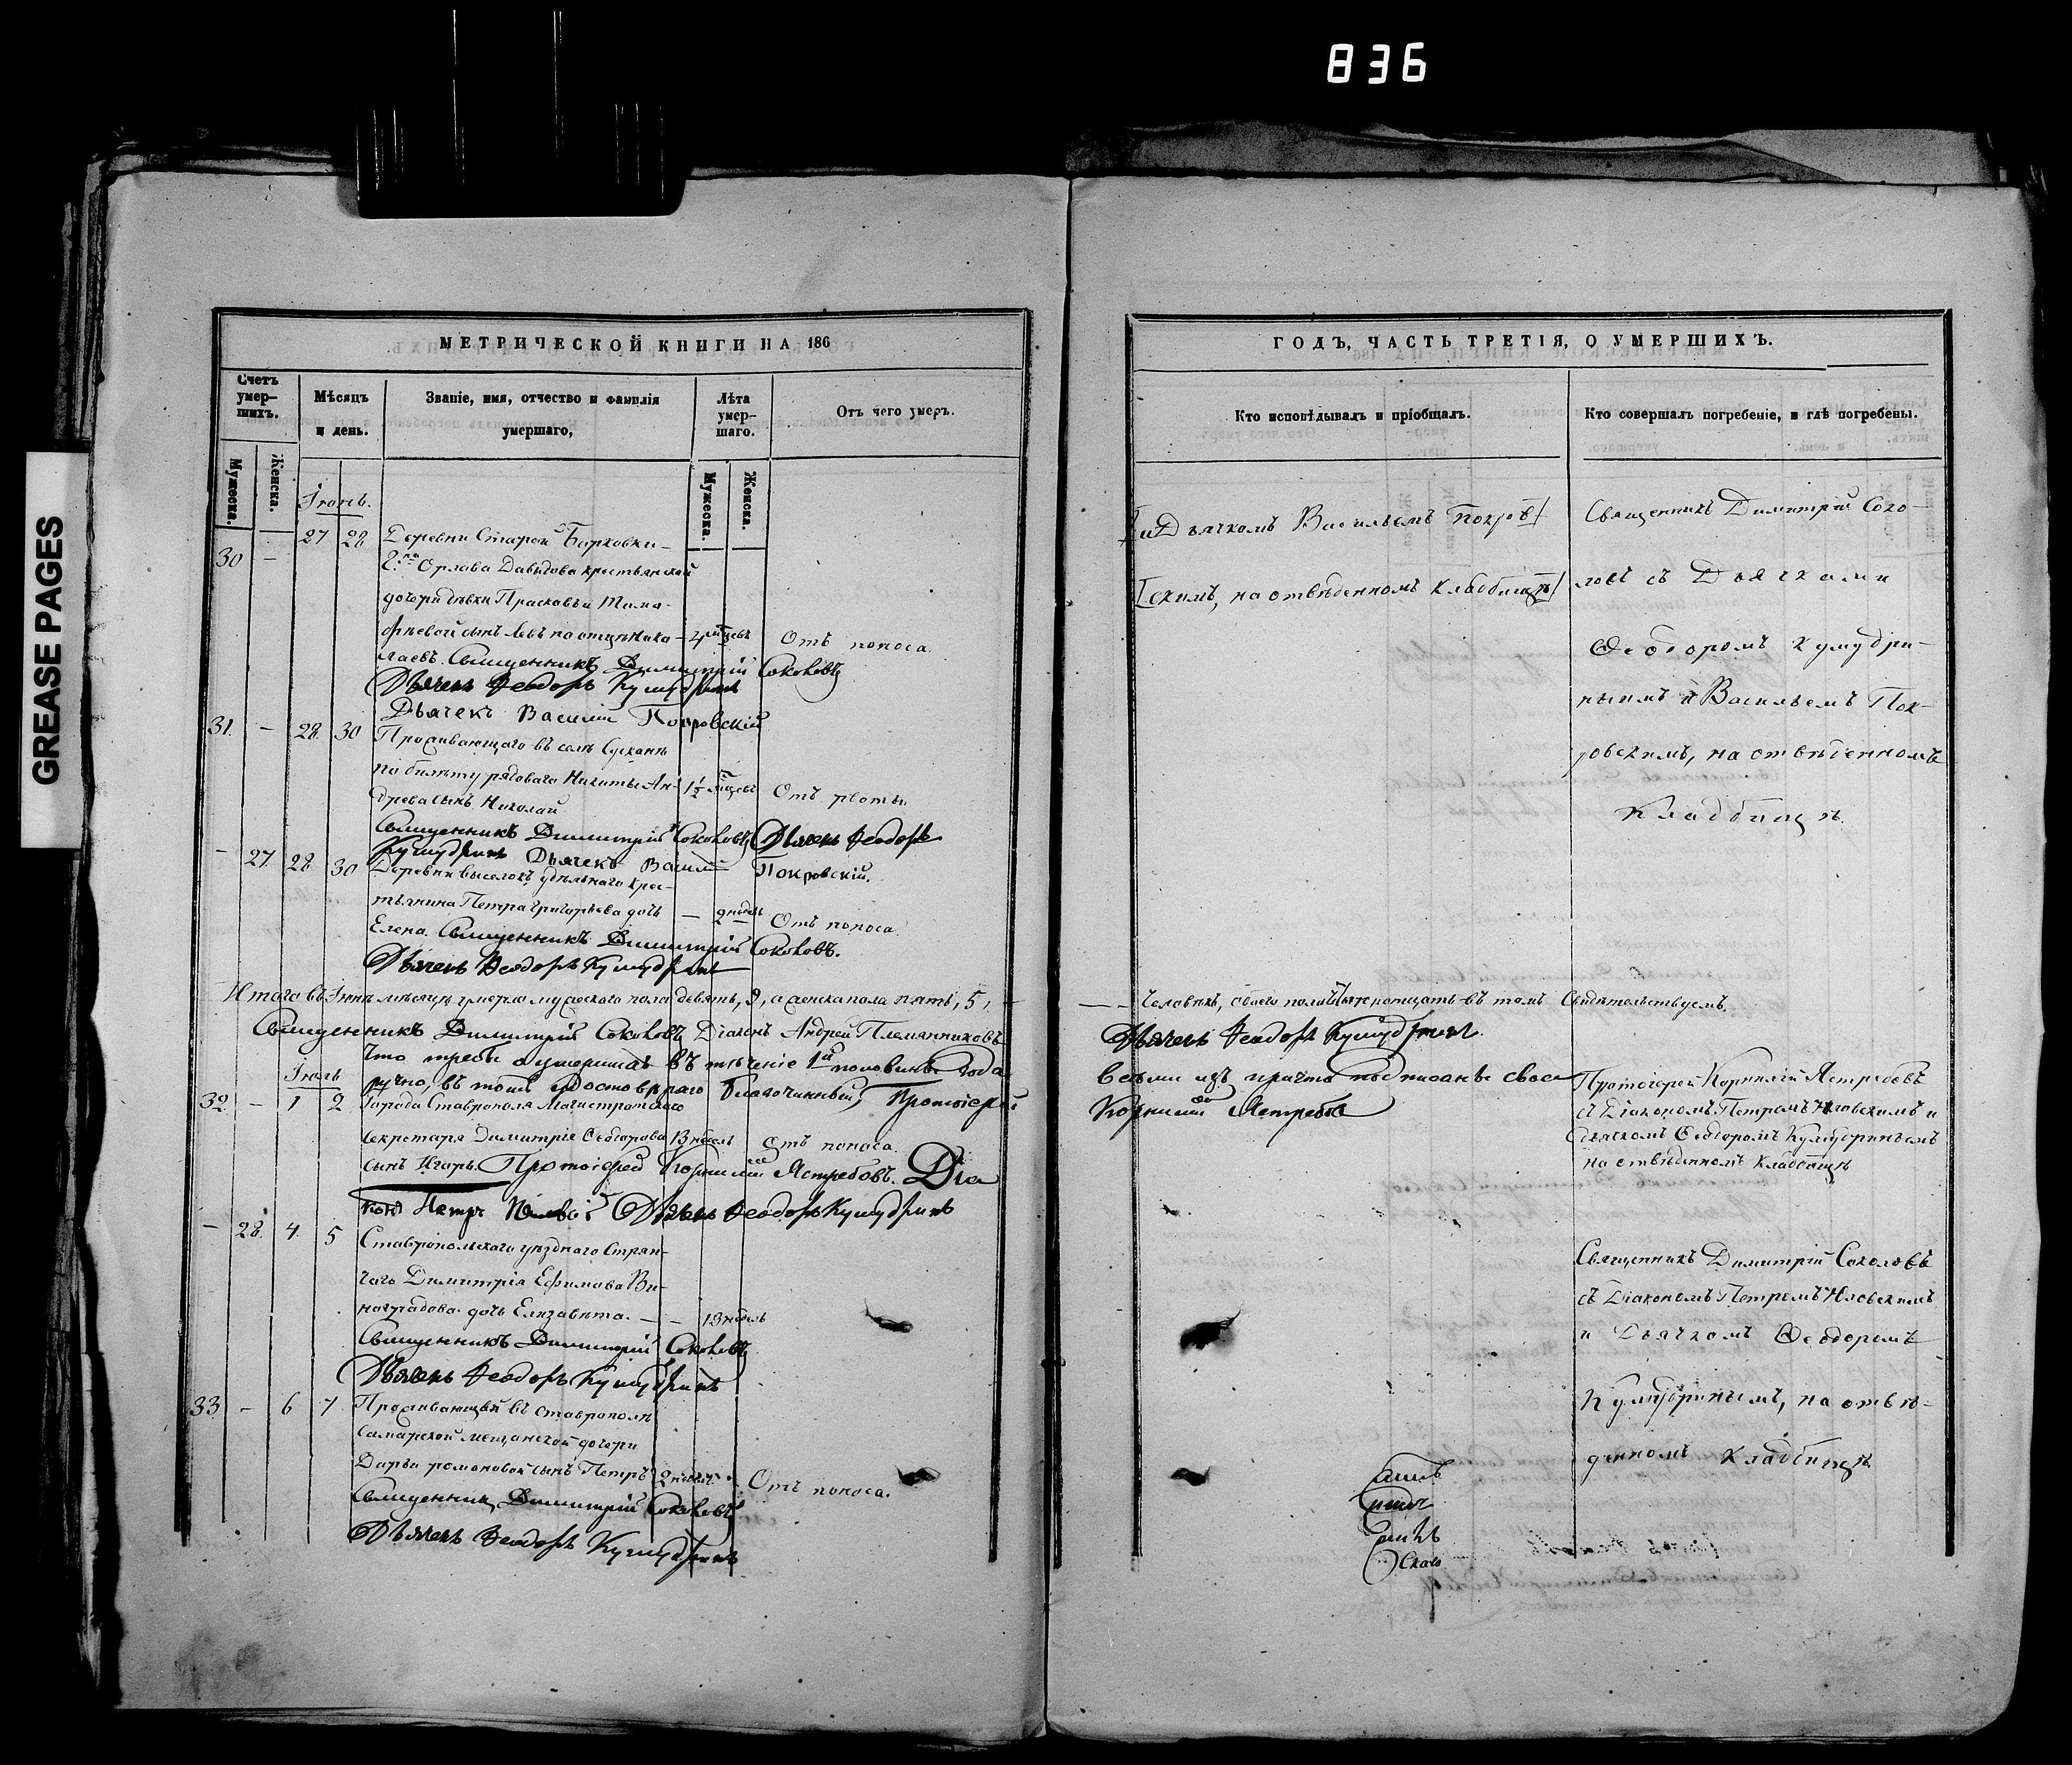 836
GREASE PAGES
МЕТРИЧЕСКОЙ КНИГИ НА 186
Счетъ умер-
шихъ.
Мужеска.
Женска.
Мѣсяцъ
и день.
Званіе, имя, отчество и фамилія
умершаго,
Лѣта
умер-
шаго.
Мужеска.
Женска.
Отъ чего умеръ.
Іюнь.
30 — 27 28 Деревни Старой Барковки
Орлова Давыдова крестьянской
дочери дѣвки Прасковьи Тимо-
фѣевой сынъ Левъ по отцу Нико- 4 мѣсцевъ Отъ поноса.
лаевъ. Священникъ Димитрій Соколовъ
Дьячекъ Ѳеодоръ Кумудринъ
Дьячекъ Василій Покровскій
31. — 28. 30 Проживающаго въ селѣ Сускан
по билету рядоваго Никиты Ан- 1½ мѣсцевъ Отъ рвоты.
древа сынъ Николай
Священникъ Димитрій Соколовъ Дьячекъ Ѳеодоръ
Кумудринъ Дьячекъ Василій Покровскій.
— 27 28 30 Деревни Выселокъ удѣльнаго крес-
тьянина Петра Григорьева дочь — 2 недѣль Отъ поноса.
Елена. Священникъ Димитрій Соколовъ.
Дьячекъ Ѳеодоръ Кумудринъ
Итого въ Іюнѣ мѣсяцѣ умерло мужескаго пола девять, 9, а женска пола пять, 5,
Священникъ Димитрій Соколовъ Діаконъ Андрей Племянниковъ
Что требы о умершихъ въ теченіе 1й половины года
ручно, въ томъ удостовѣряю Благочинный, Протоіерей
Іюль
32. — 1 2 Города Ставрополя Магистратскаго
секретаря Димитрія Ѳеодорова 13 недѣль Отъ поноса.
сынъ Игорь. Протоіерей Корнилій Ястребовъ. Діа
конъ Петръ Дьячекъ Ѳеодоръ Кумудринъ
— 28. 4. 5 Ставропольскаго уѣзднаго Стряп-
чаго Димитрія Ефимова Ви-
ноградова дочь Елизавета. — — 13 недѣль
Священникъ Димитрій Соколовъ
Дьячекъ Ѳеодоръ Кумудринъ
33 — 6 7 Проживающей въ Ставрополѣ
Самарской мещанской дочери
Дарьи Романовой сынъ Петръ 2 недѣль Отъ поноса.
Священникъ Димитрій Соколовъ
Дьячекъ Ѳеодоръ Кумудринъ
ГОДЪ, ЧАСТЬ ТРЕТІЯ, О УМЕРШИХЪ.
Кто исповѣдывалъ и пріобщалъ.
Кто совершалъ погребеніе, и гдѣ погребены.
и Дьячкомъ Васильемъ Покров
скимъ, на отвѣденномъ кладбищѣ
Священникъ Димитрій Соко-
ловъ съ Дьячками
Ѳеодоромъ Кумудри-
нымъ и Васильемъ Пок-
ровскимъ, на отвѣденномъ
Кладбищѣ.
— — Человѣкъ, обоего пола четырнатцать въ томъ Свидѣтельствуемъ.
Дьячекъ Ѳеодоръ Кумудринъ.
всѣми изъ причта подписаны свое
Корнилій Ястребовъ
Протоіерей Корнилій Ястребовъ
съ Діакономъ Петромъ и
Дьячкомъ Ѳеодоромъ Кумудринымъ
на отвѣденномъ Кладбищѣ
Священникъ Димитрій Соколовъ
съ Діакономъ Петромъ
и Дьячкомъ Ѳеодоромъ
Кумудринымъ, на отвѣ-
денномъ кладбищѣ.